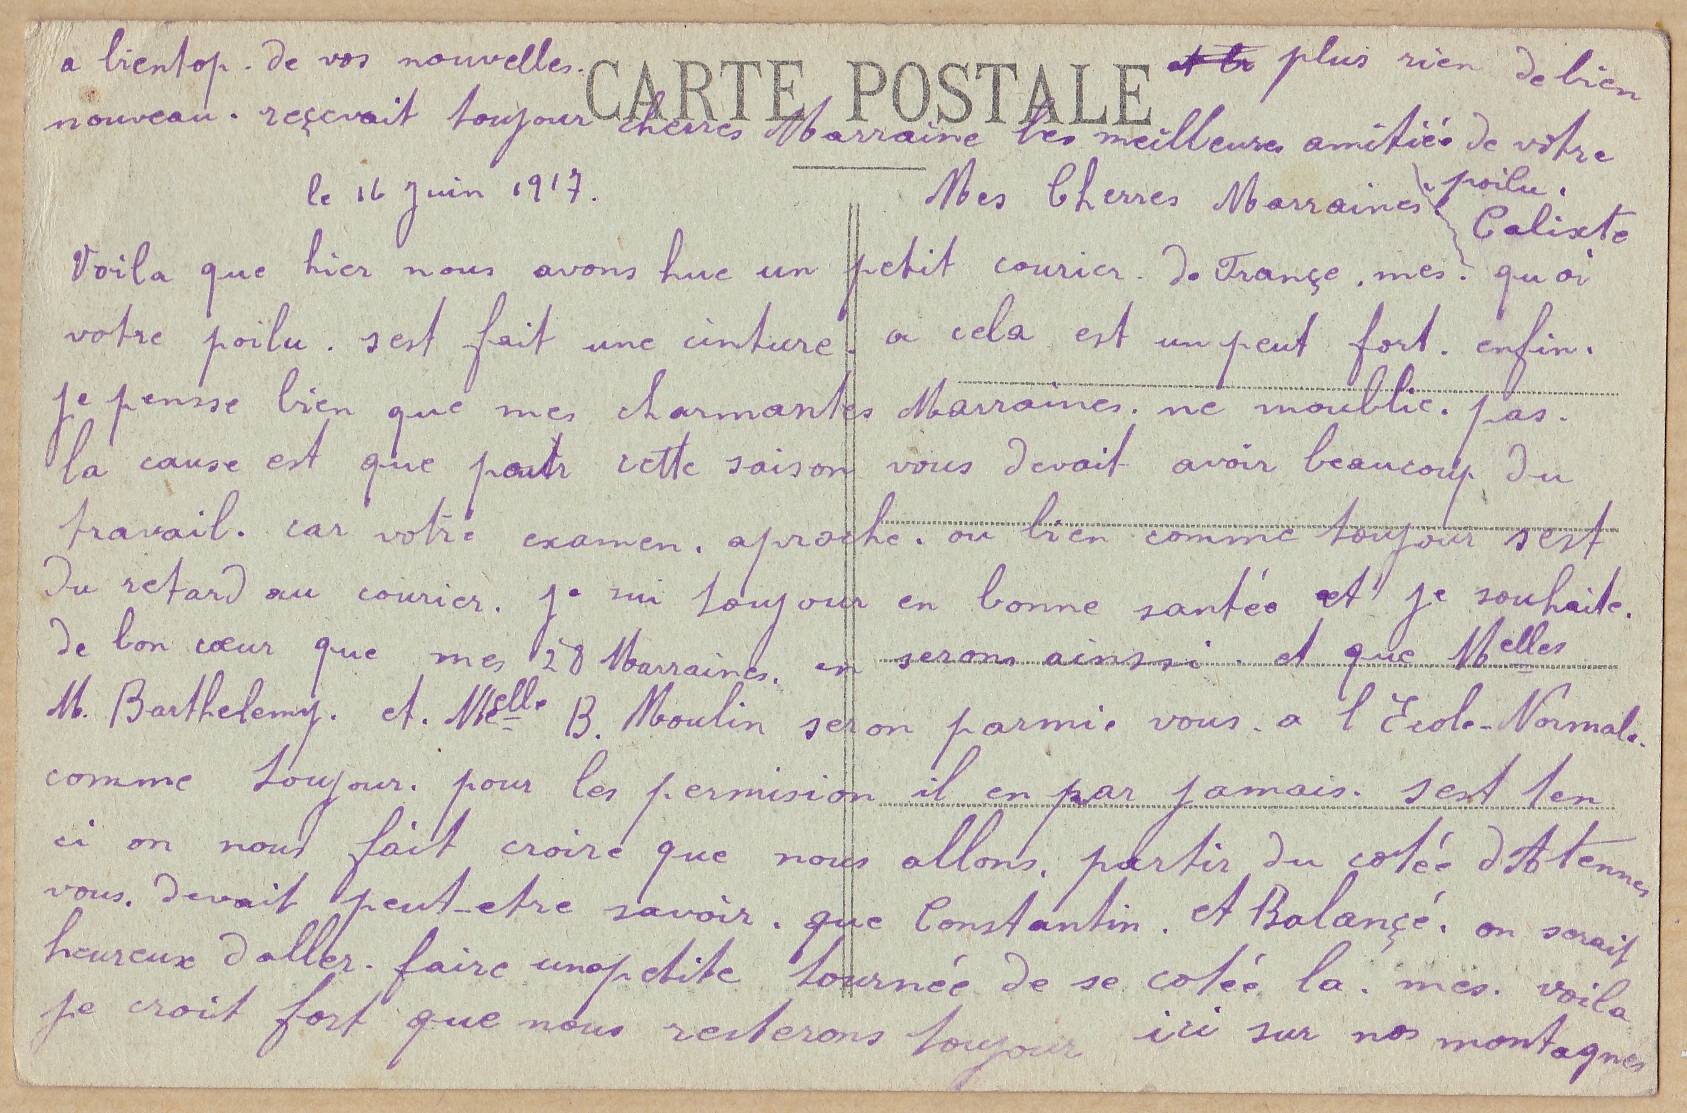 a bientop. de vos nouvelles. CARTE POSTALE plus rien de bien
nouveau. reçevait toujour cherres Marraine les meilleures amitiés de votre
poilu.
Calixte
le 16 Juin 1917. Mes Cherres Marraines.
Voila que hier nous avons hue un petit courier. de Françe. mes. quoi
votre poilu. sest fait une cinture. a cela est un peut fort. enfin.
je pensse bien que mes charmantes Marraines. ne moublie. pas.
la cause est que cette saison vous devait avoir beaucoup du
travail. car votre examen. aproche. ou bien comme toujour sest
du retard au courier. je sui toujour en bonne santée et je souhaite.
de bon cœur que mes 28 Marraines. en serons ainssi. et que Melles
M. Barthelemy. et. Melle B. Moulin seron parmie vous. a l Ecole-Normale.
comme toujour. pour les permision il en par jamais. sest ten
ci on nous fait croire que nous allons. partir du cotée dAtennes
vous. devait peut-etre savoir. que Constantin. et Balançé. on serait
heureux daller. faire une petite tournée de se cotée la. mes. voila
je croit fort que nous resterons toujour ici sur nos montagnes